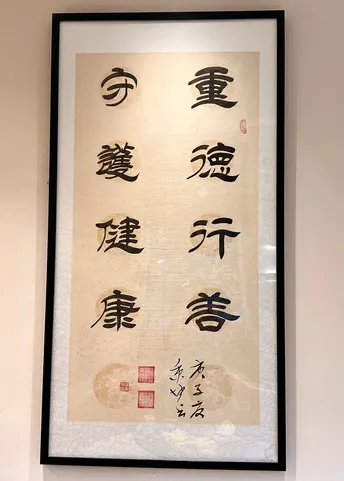 重德行善
守護健康
庚子夏